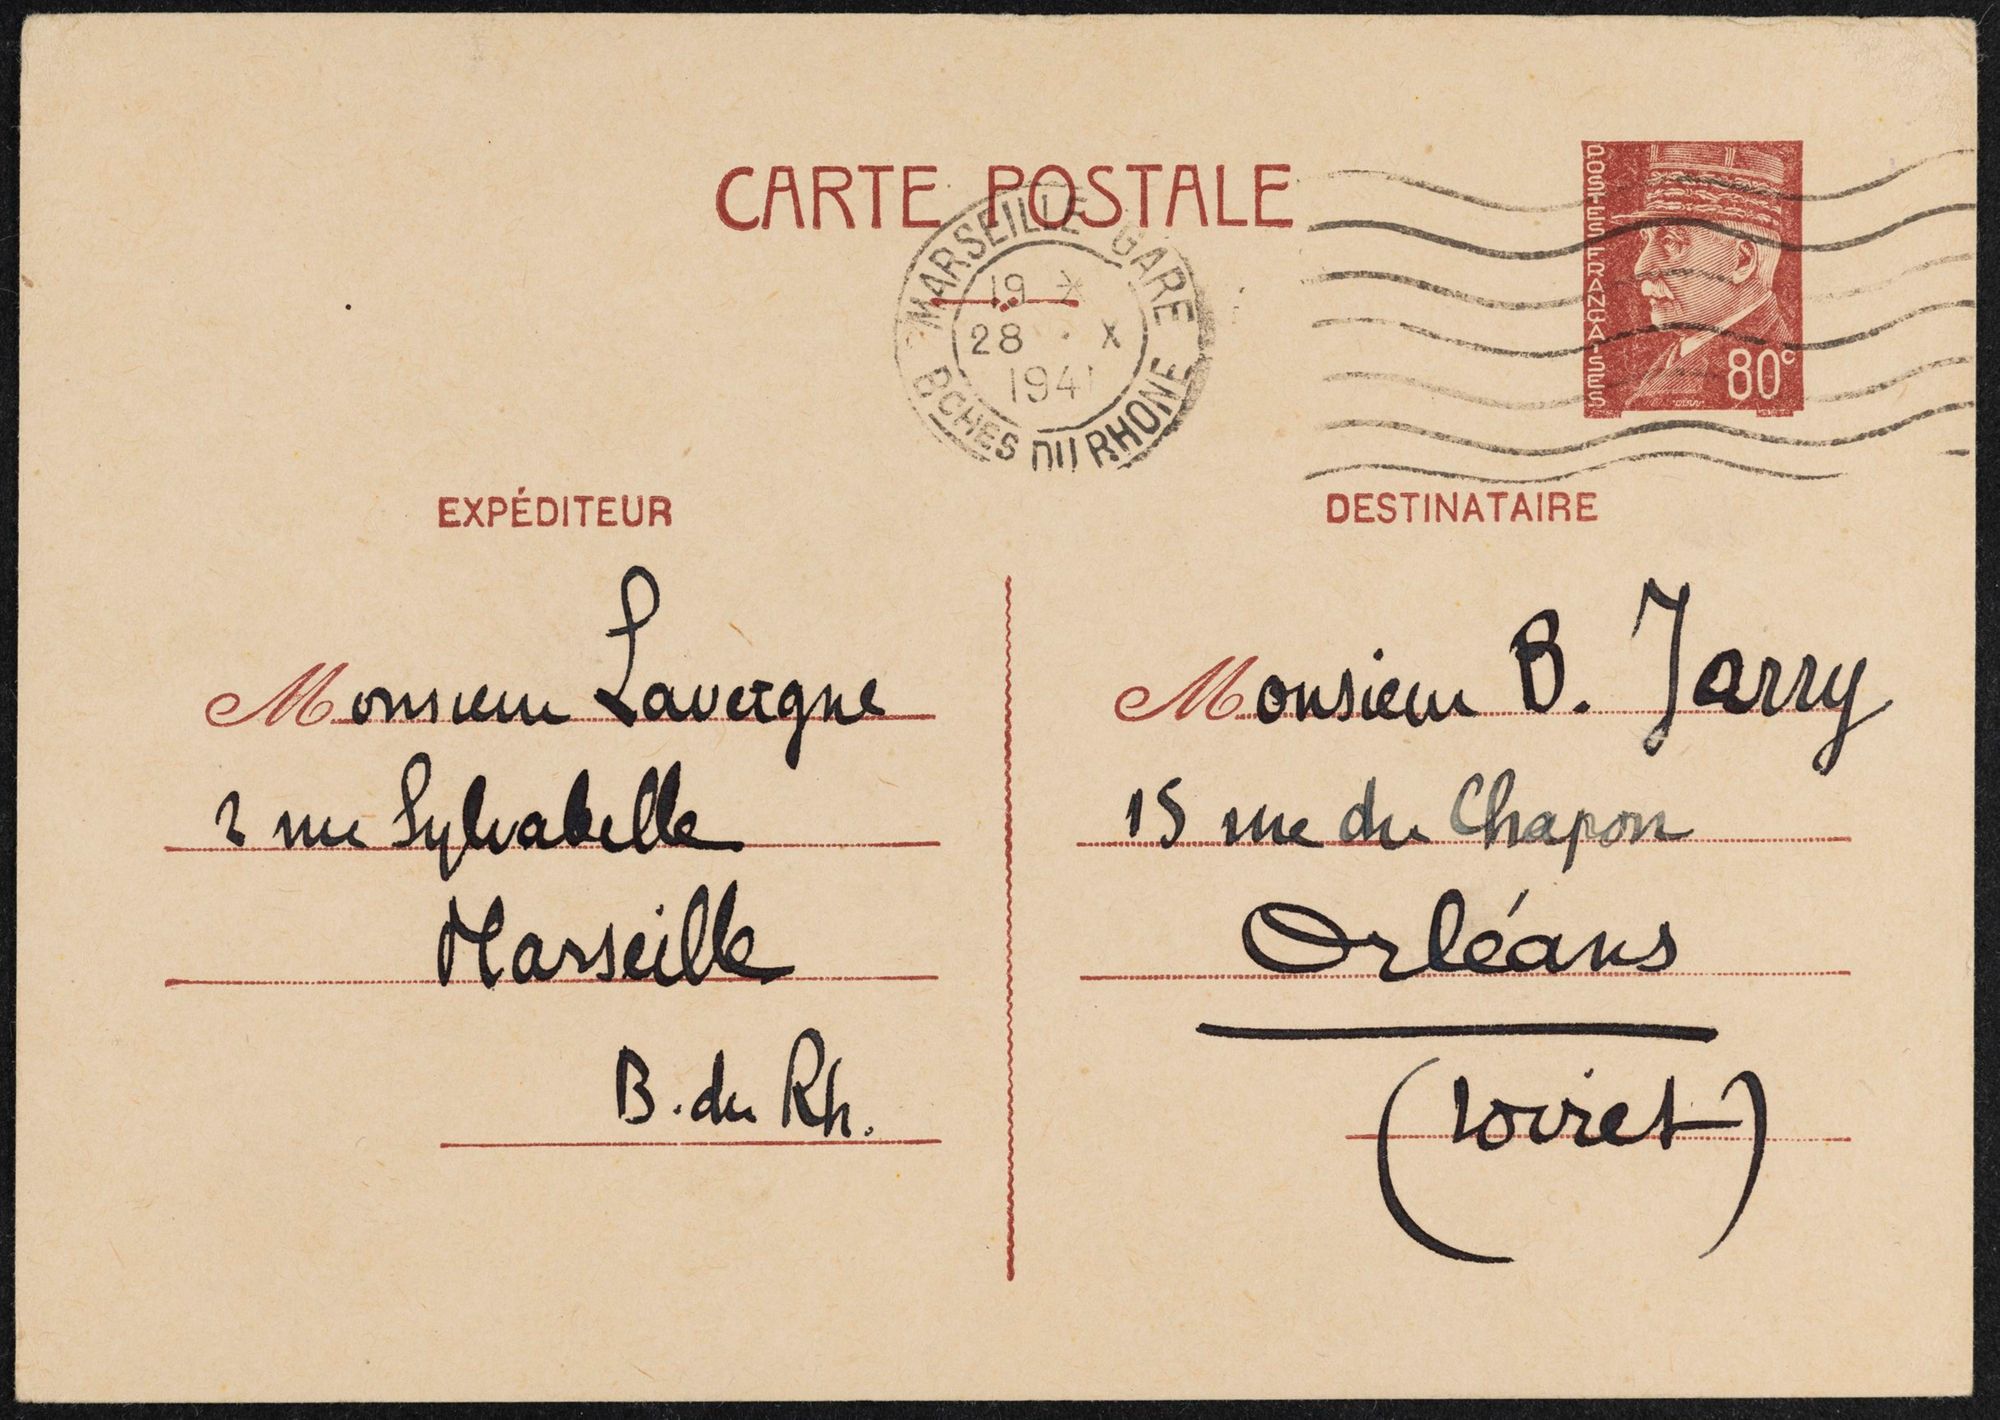 CARTE POSTALE
POSTES FRANÇAISES
80c
MARSEILLE GARE
19
28 X
1941
BCHES DU RHONE
EXPÉDITEUR
Monsieur Lavergne
2 rue Sylvabelle
Marseille
B. du Rh.
DESTINATAIRE
Monsieur B. Jarry
15 rue du Chapon
Orléans
(Loiret)